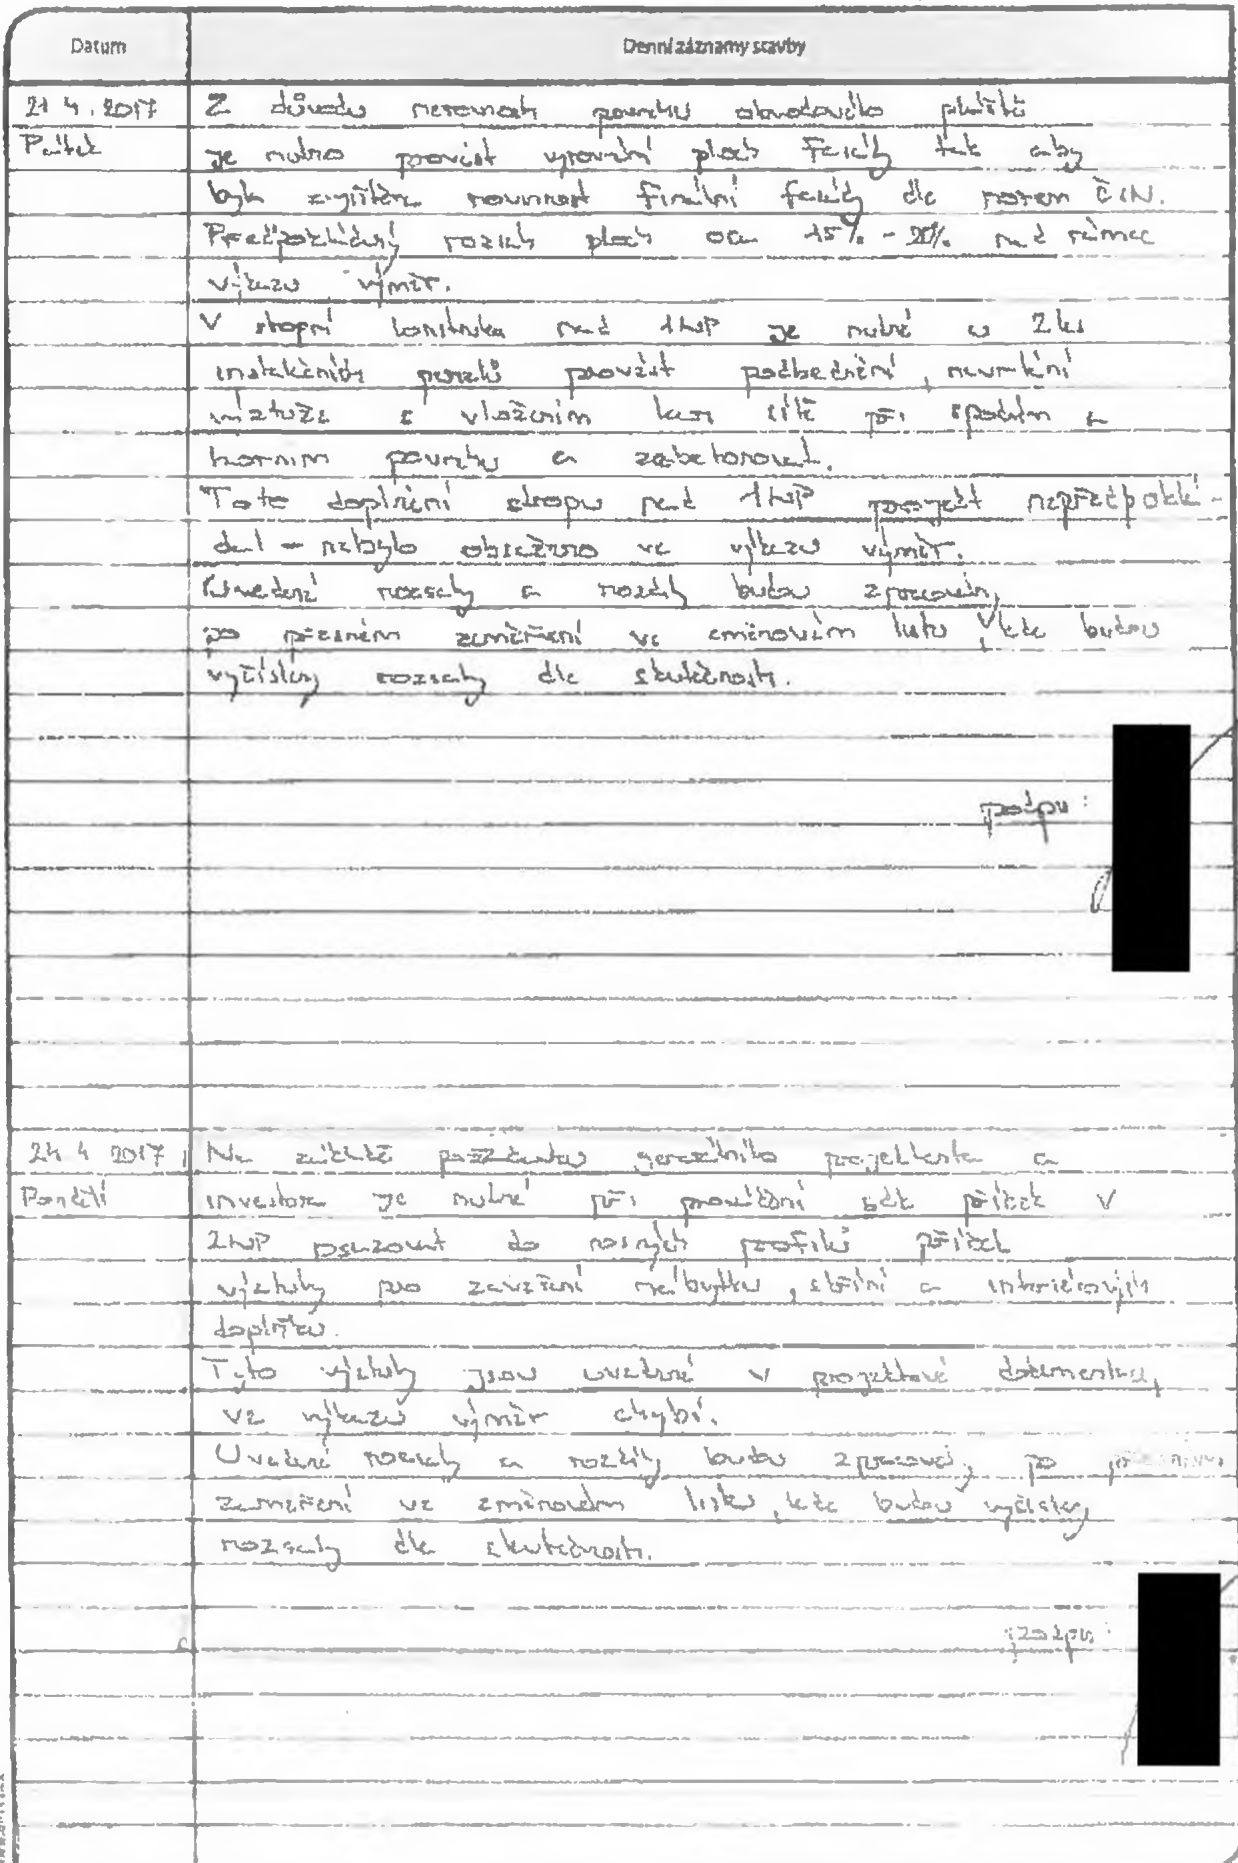 Datum
Denní záznamy stavby
21.4.2017
Z důvodu nerovnosti povrchu obvodového pláště
Pátek
je nutno provést vyrovnání ploch fasády tak aby
byla zajištěna rovinnost finální fasády dle norem ČSN.
Předpokládaný rozsah ploch cca 15% - 20% nad rámec
výkazu výměr.
V stropní konstrukci nad 1NP je nutné u 2ks
instalačních prostupů provést podbednění, navrtání
výztuže s vložením kari sítě při spodním a
horním povrchu a zabetonovat.
Toto doplnění stropu nad 1NP projekt nepředpoklá-
dal - nebylo obsaženo ve výkazu výměr.
Uvedené rozsahy a rozdíly budou zpracovány
po přesném zaměření ve změnovém listu, kde budou
vyčísleny rozsahy dle skutečnosti.
podpis:
24.4.2017
Na základě požadavku generálního projektanta a
Pondělí
investora je nutné při provádění sdk příček v
2NP osazovat do nosných profilů příček
výztuhy pro zavěšení nábytku, skříní a interiérových
doplňků.
Tyto výztuhy jsou uvedené v projektové dokumentaci,
ve výkazu výměr chybí.
Uvedené rozsahy a rozdíly budou zpracovány, po přesném
zaměření ve změnovém listu, kde budou vyčísleny
rozsahy dle skutečnosti.
podpis: